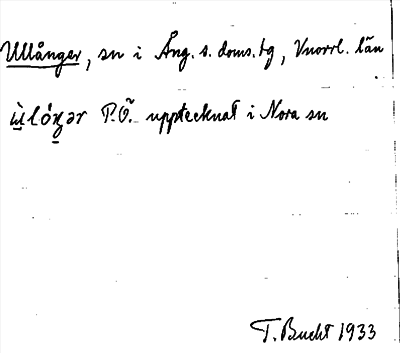 Ullånger, sn i Ång. s. doms.tg, Vnorrl. län
ùlóŋər P.Ö. upptecknat i Nora sn
T. Bucht 1933